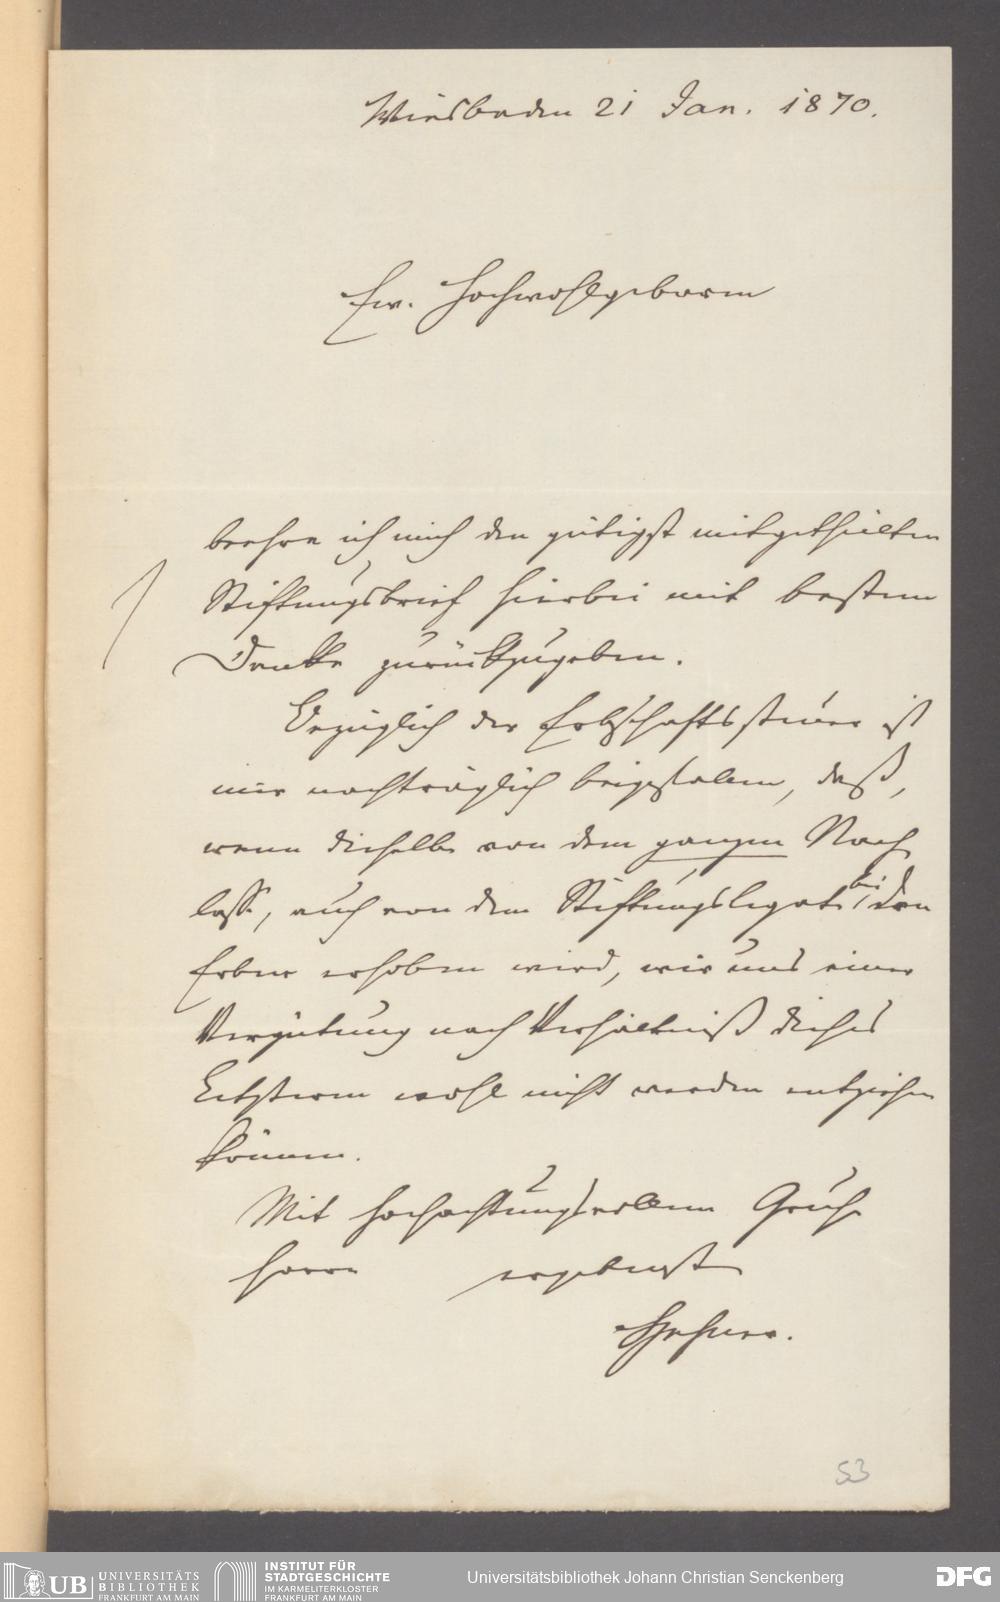 Wiesbaden 21 Jan. 1870.
Ew. Hochwohlgeboren
beehre ich mich den gütigst mitgetheilten
Stiftungsbrief hierbei mit bestem
Danke zurückzugeben.
Bezüglich der Erbschaftssteuer ist
mir nachträglich beigefallen, daß,
wenn dieselbe von dem ganzen Nach
lasse, auch von dem Stiftungslegate bei den
Erben erhoben wird, wir uns einer
Vergütung nach Verhältniß dieses
Letzteren wohl nicht werden entziehen
können.
Mit hochachtungsvollem Gruße
Ihren ergebenst
53
UB UNIVERSITÄTS
BIBLIOTHEK
FRANKFURT AM MAIN
INSTITUT FÜR
STADTGESCHICHTE
IM KARMELITERKLOSTER
FRANKFURT AM MAIN
Universitätsbibliothek Johann Christian Senckenberg
DFG